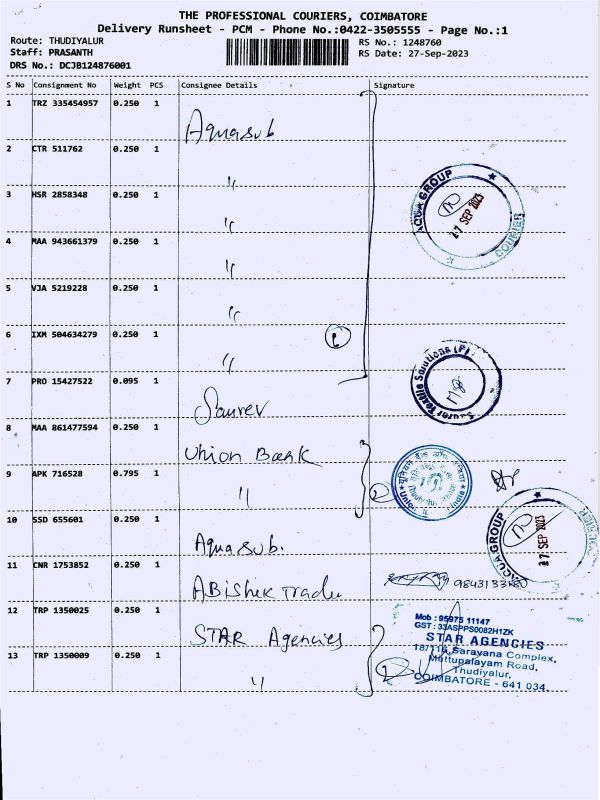 THE PROFESSIONAL COURIERS, COIMBATORE
Delivery Runsheet - PCM - Phone No.:0422-3505555 - Page No.:1
Route: THUDIYALUR
RS No.: 1248760
Staff: PRASANTH
RS Date: 27-Sep-2023
DRS No.: DCJB124876001
S No Consignment No Weight PCS Consignee Details Signature
1 TRZ 335454957 0.250 1
Aquasub
2 CTR 511762 0.250 1
"
3 HSR 2858348 0.250 1
"
4 MAA 943661379 0.250 1
"
5 VJA 5219228 0.250 1
"
6 IXM 504634279 0.250 1
"
ACQUA GROUP
SEP 2023
COURIER
7 PRO 15427522 0.095 1
Saurev
Textile Solutions (P)
8 MAA 861477594 0.250 1
Union Bank
9 APK 716528 0.795 1
"
Union
India
10 SSD 655601 0.250 1
Aquasub.
ACQUA GROUP
SEP 2023
11 CNR 1753852 0.250 1
ABishek Trade
12 TRP 1350025 0.250 1
STAR Agencies
13 TRP 1350009 0.250 1
"
2
Mob : 95975 11147
GST : 33ASPPS0082H1ZK
STAR AGENCIES
18/116, Saravana Complex,
Mettupalayam Road,
Thudiyalur,
COIMBATORE - 641 034.